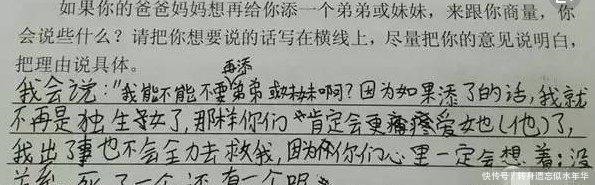 如果你的爸爸妈妈想再给你添一个弟弟或妹妹，来跟你商量，你
会说些什么？请把你想要说的话写在横线上，尽量把你的意见说明白，
把理由说具体。
再添
我会说："我能不能不要弟弟或妹妹啊？因为如果添了的话，我就
不再是独生子女了，那样你们肯定会更疼爱她（他）了，
我出了事也不会全力去救我，因为你们心里一定会想着：没
关系，死了一个还有一个呢
快传号/转身遗忘似水年华